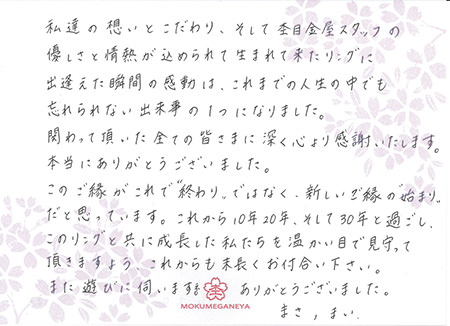 私達の想いとこだわり、そして杢目金屋スタッフの
優しさと情熱が込められて生まれて来たリングに
出逢えた瞬間の感動は、これまでの人生の中でも
忘れられない出来事の1つになりました。
関わって頂いた全ての皆さまに深く心より感謝いたします。
本当にありがとうございました。
このご縁がこれで"終わり"ではなく、新しいご縁の"始まり"
だと思っています。これから10年20年、そして30年と過ごし、
このリングと共に成長した私たちを温かい目で見守って
頂きますよう、これからも末長くお付合い下さい。
また遊びに伺います ありがとうございました。
MOKUMEGANEYA
まさ,まい.